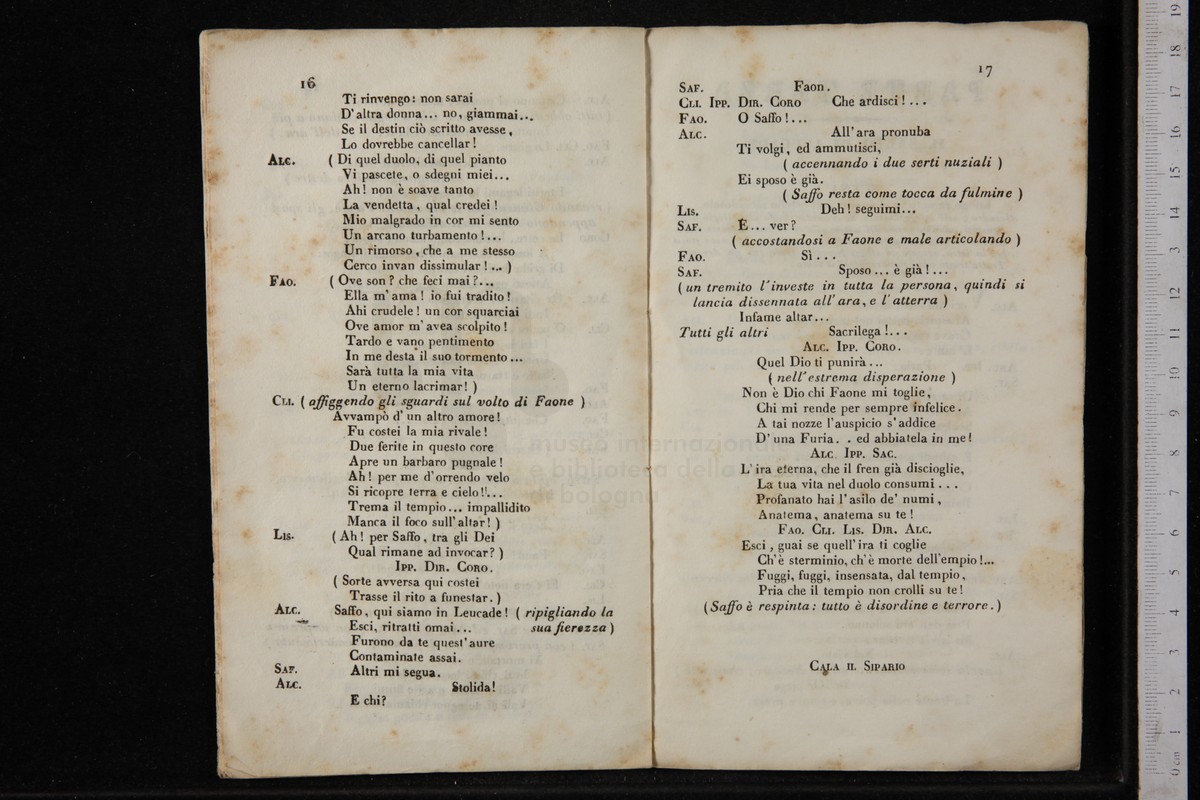 16
Ti rinvengo: non sarai
D'altra donna... no, giammai...
Se il destin ciò scritto avesse,
Lo dovrebbe cancellar!
ALC. ( Di quel duolo, di quel pianto
Vi pascete, o sdegni miei...
Ah! non è soave tanto
La vendetta, qual credei!
Mio malgrado in cor mi sento
Un arcano turbamento!...
Un rimorso, che a me stesso
Cerco invan dissimular!... )
FAO. ( Ove son? che feci mai?...
Ella m'ama! io fui tradito!
Ahi crudele! un cor squarciai
Ove amor m'avea scolpito!
Tardo e vano pentimento
In me desta il suo tormento...
Sarà tutta la mia vita
Un eterno lacrimar! )
CLI. ( affiggendo gli sguardi sul volto di Faone )
Avvampò d'un altro amore!
Fu costei la mia rivale!
Due ferite in questo core
Apre un barbaro pugnale!
Ah! per me d'orrendo velo
Si ricopre terra e cielo!!...
Trema il tempio... impallidito
Manca il foco sull'altar! )
LIS. ( Ah! per Saffo, tra gli Dei
Qual rimane ad invocar? )
IPP. DIR. CORO.
( Sorte avversa qui costei
Trasse il rito a funestar. )
ALC. Saffo, qui siamo in Leucade! ( ripigliando la
Esci, ritratti omai... sua fierezza )
Furono da te quest'aure
Contaminate assai.
SAF. Altri mi segua.
ALC. Stolida!
E chi?
17
SAF. Faon.
CLI. IPP. DIR. CORO Che ardisci!...
FAO. O Saffo!...
ALC. All'ara pronuba
Ti volgi, ed ammutisci,
( accennando i due serti nuziali )
Ei sposo è già.
( Saffo resta come tocca da fulmine )
LIS. Deh! seguimi...
SAF. È... ver?
( accostandosi a Faone e male articolando )
FAO. Sì...
SAF. Sposo... è già!...
( un tremito l'investe in tutta la persona, quindi si
lancia dissennata all'ara, e l'atterra )
Infame altar...
Tutti gli altri Sacrilega!...
ALC. IPP. CORO.
Quel Dio ti punirà...
( nell'estrema disperazione )
Non è Dio chi Faone mi toglie,
Chi mi rende per sempre infelice.
A tai nozze l'auspicio s'addice
D'una Furia. . ed abbiatela in me!
ALC IPP. SAC.
L'ira eterna, che il fren già discioglie,
La tua vita nel duolo consumi...
Profanato hai l'asilo de' numi,
Anatema, anatema su te!
FAO. CLI. LIS. DIR. ALC.
Esci, guai se quell'ira ti coglie
Ch'è sterminio, ch'è morte dell'empio!...
Fuggi, fuggi, insensata, dal tempio,
Pria che il tempio non crolli su te!
(Saffo è respinta: tutto è disordine e terrore.)
CALA IL SIPARIO
museo internazionale
e biblioteca della
di bologna